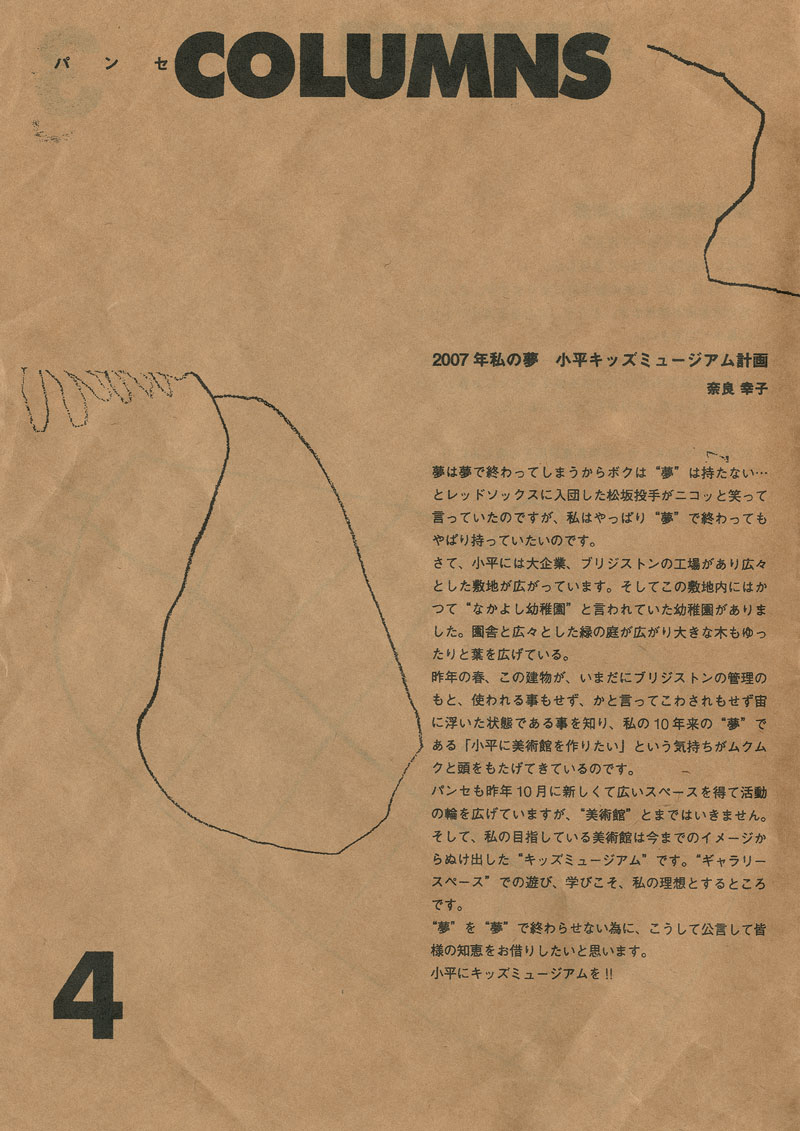 パンセ COLUMNS
2007年私の夢　小平キッズミュージアム計画
奈良 幸子
夢は夢で終わってしまうからボクは“夢”は持たない…
とレッドソックスに入団した松坂投手がニコッと笑って
言っていたのですが、私はやっぱり“夢”で終わっても
やぱり持っていたいのです。
さて、小平には大企業、ブリジストンの工場があり広々
とした敷地が広がっています。そしてこの敷地内にはか
つて“なかよし幼稚園”と言われていた幼稚園がありま
した。園舎と広々とした緑の庭が広がり大きな木もゆっ
たりと葉を広げている。
昨年の春、この建物が、いまだにブリジストンの管理の
もと、使われる事もせず、かと言ってこわされもせず宙
に浮いた状態である事を知り、私の10年来の“夢”で
ある「小平に美術館を作りたい」という気持ちがムクム
クと頭をもたげてきているのです。
パンセも昨年10月に新しくて広いスペースを得て活動
の輪を広げていますが、“美術館”とまではいきません。
そして、私の目指している美術館は今までのイメージか
らぬけ出した“キッズミュージアム”です。“ギャラリー
スペース”での遊び、学びこそ、私の理想とするところ
です。
“夢”を“夢”で終わらせない為に、こうして公言して皆
様の知恵をお借りしたいと思います。
小平にキッズミュージアムを!!
4